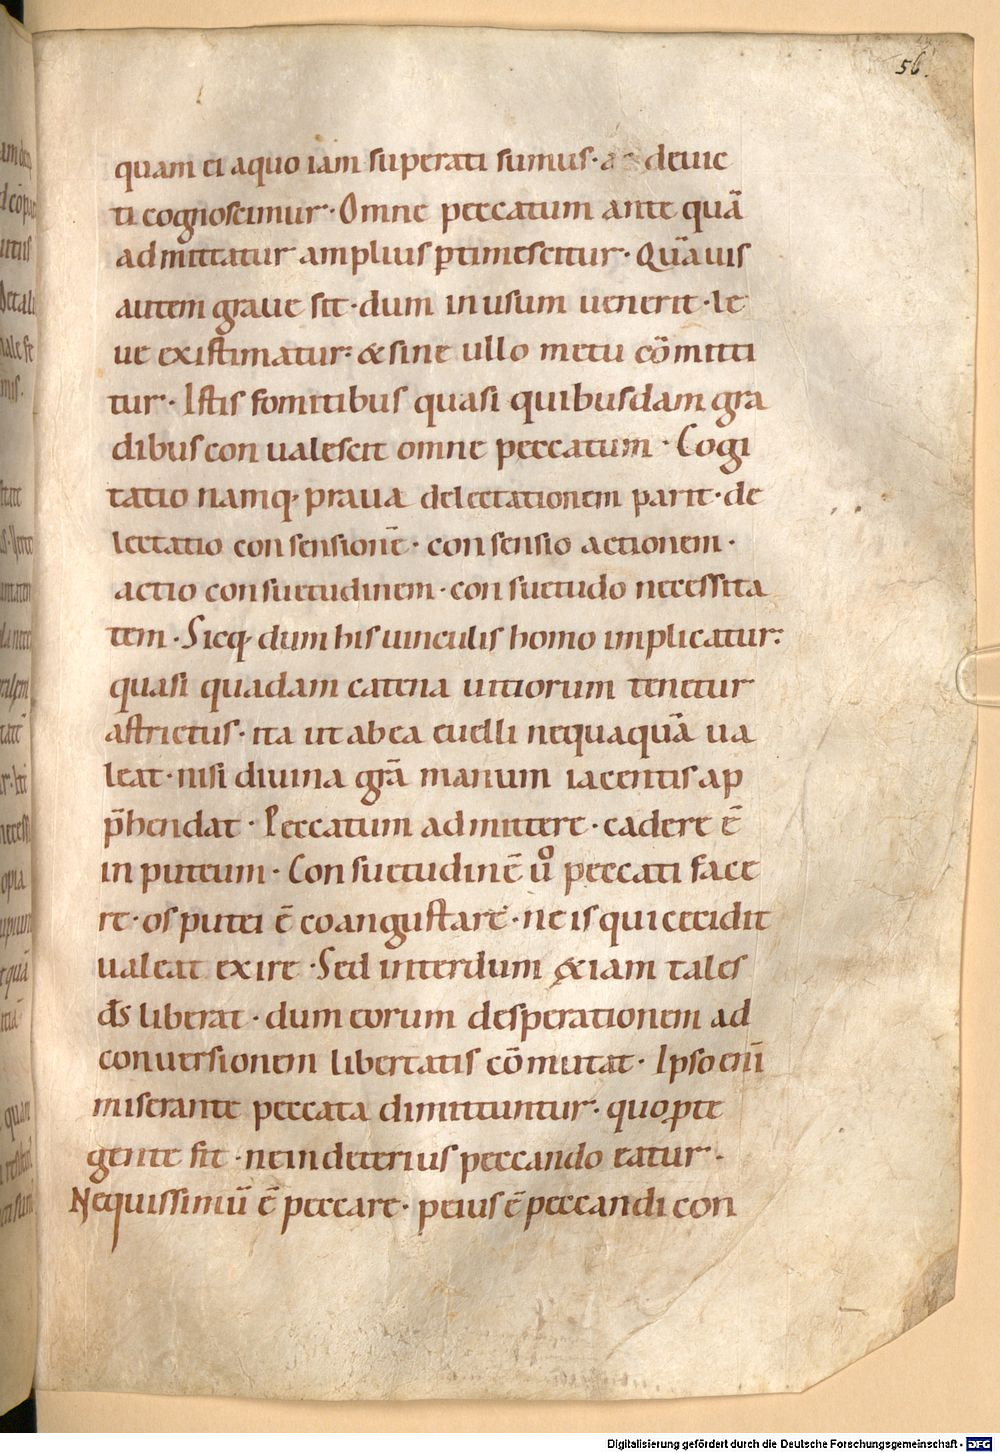 56.
quam ei aquo iam superati sumus· ac deuic
ti cognoscimur· Omne peccatum ante quā
admittatur amplius ꝑtimescitur· Quāuis
autem graue sit· dum in usum uenerit· le
ue existimatur· & sine ullo metu cōmitti
tur· Istis fomitibus quasi quibusdam gra
dibus conualescit omne peccatum· Cogi
tatio namq; praua delectationem parit· de
lectatio consensionē· consensio actionem·
actio consuetudinem· consuetudo necessita
tem· Sicq; dum his uinculis homo implicatur·
quasi quadam catena uitiorum tenetur
astrictus· ita ut ab ea euelli nequaquā ua
leat· nisi diuina grā manum iacentis ap
p̄hendat· Peccatum admittere· cadere ē
in puteum· Consuetudinē uo peccati face
re· os putei ē coangustare· ne is qui cecidit
ualeat exire· Sed interdum &iam tales
ds̄ liberat· dum eorum desperationem ad
conuersionem libertatis cōmutat· Ipso enī
miserante peccata dimittuntur· quo ꝓte
gente fit· ne in deterius peccando eatur·
Nequissimū ē peccare· peius ē peccandi con
Digitalisierung gefördert durch die Deutsche Forschungsgemeinschaft - DFG